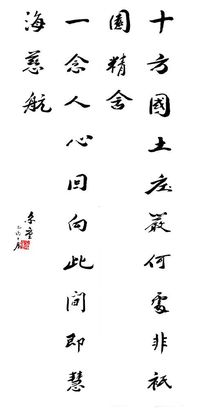 十方國土庄嚴何處非祇
園精舍
一念人心回向此間即慧
海慈航